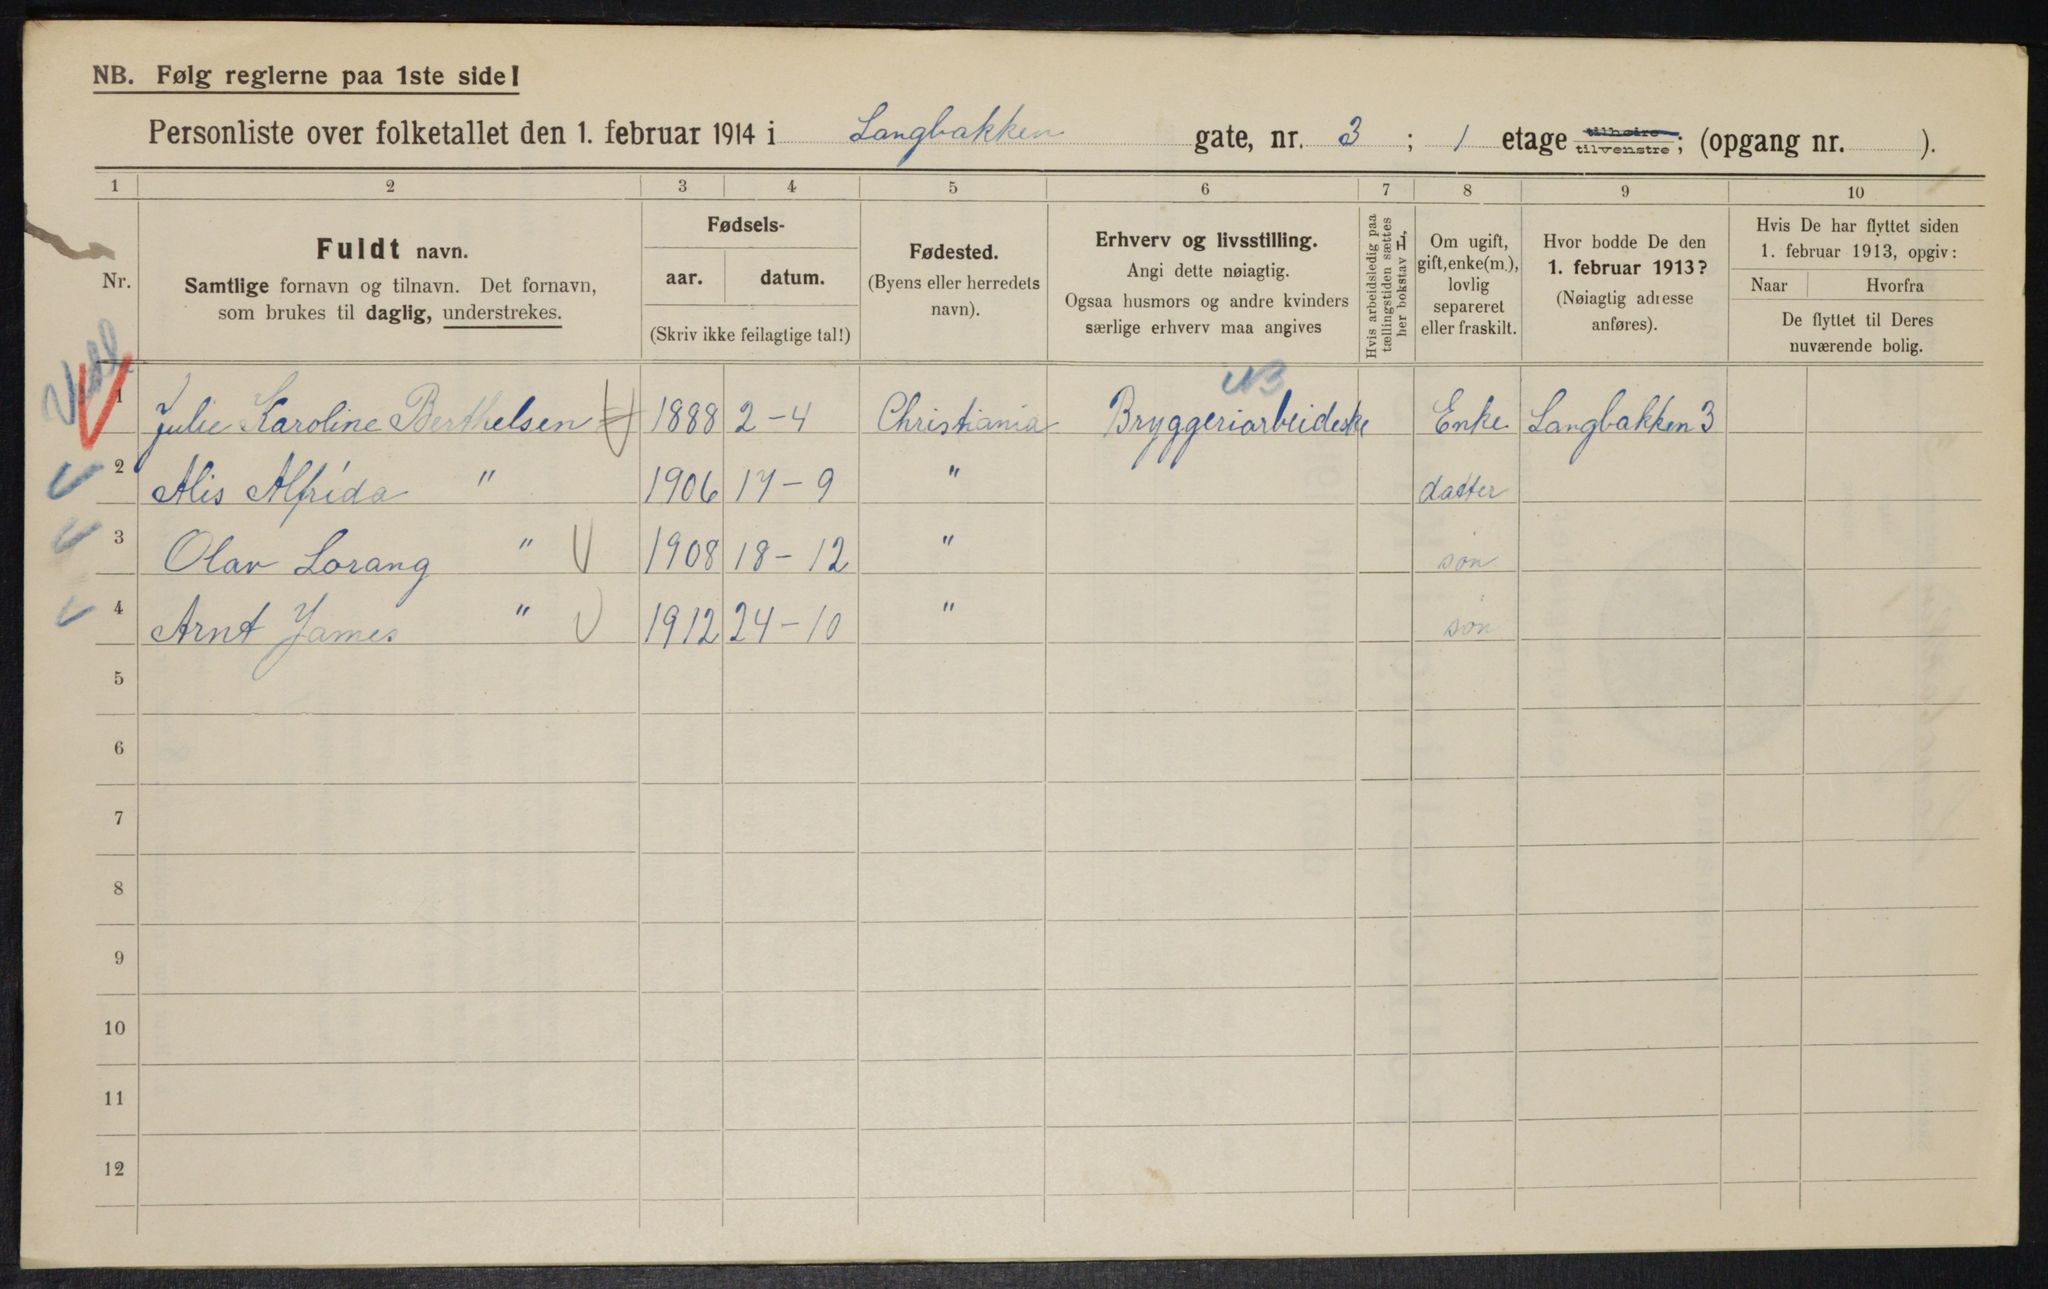 NB. Følg reglerne paa 1ste side!
Personliste over folketallet den 1. februar 1914 i Langbakken gate, nr. 3; 1 etage tilhøire tilvenstre; (opgang nr. ).
1 2 3 4 5 6 7 8 9 10
Nr.
Fuldt navn.
Samtlige fornavn og tilnavn. Det fornavn,
som brukes til daglig, understrekes.
Fødsels-
aar. datum.
(Skriv ikke feilagtige tal!)
Fødested.
(Byens eller herredets
navn).
Erhverv og livsstilling.
Angi dette nøiagtig.
Ogsaa husmors og andre kvinders
særlige erhverv maa angives
Hvis arbeidsledig paa
tællingstiden sættes
her bokstav L,
Om ugift,
gift, enke(m.),
lovlig
separeret
eller fraskilt.
Hvor bodde De den
1. februar 1913?
(Nøiagtig adresse
anføres).
Hvis De har flyttet siden
1. februar 1913, opgiv:
Naar Hvorfra
De flyttet til Deres
nuværende bolig.
NB
1 Julie Karoline Berthelsen 1888 2-4 Christiania Bryggeriarbeideske Enke Langbakken 3
2 Alis Alfrida " 1906 17-9 " datter
3 Olav Lorang " 1908 18-12 " søn
4 Arnt James " 1912 24-10 " søn
5
6
7
8
9
10
11
12